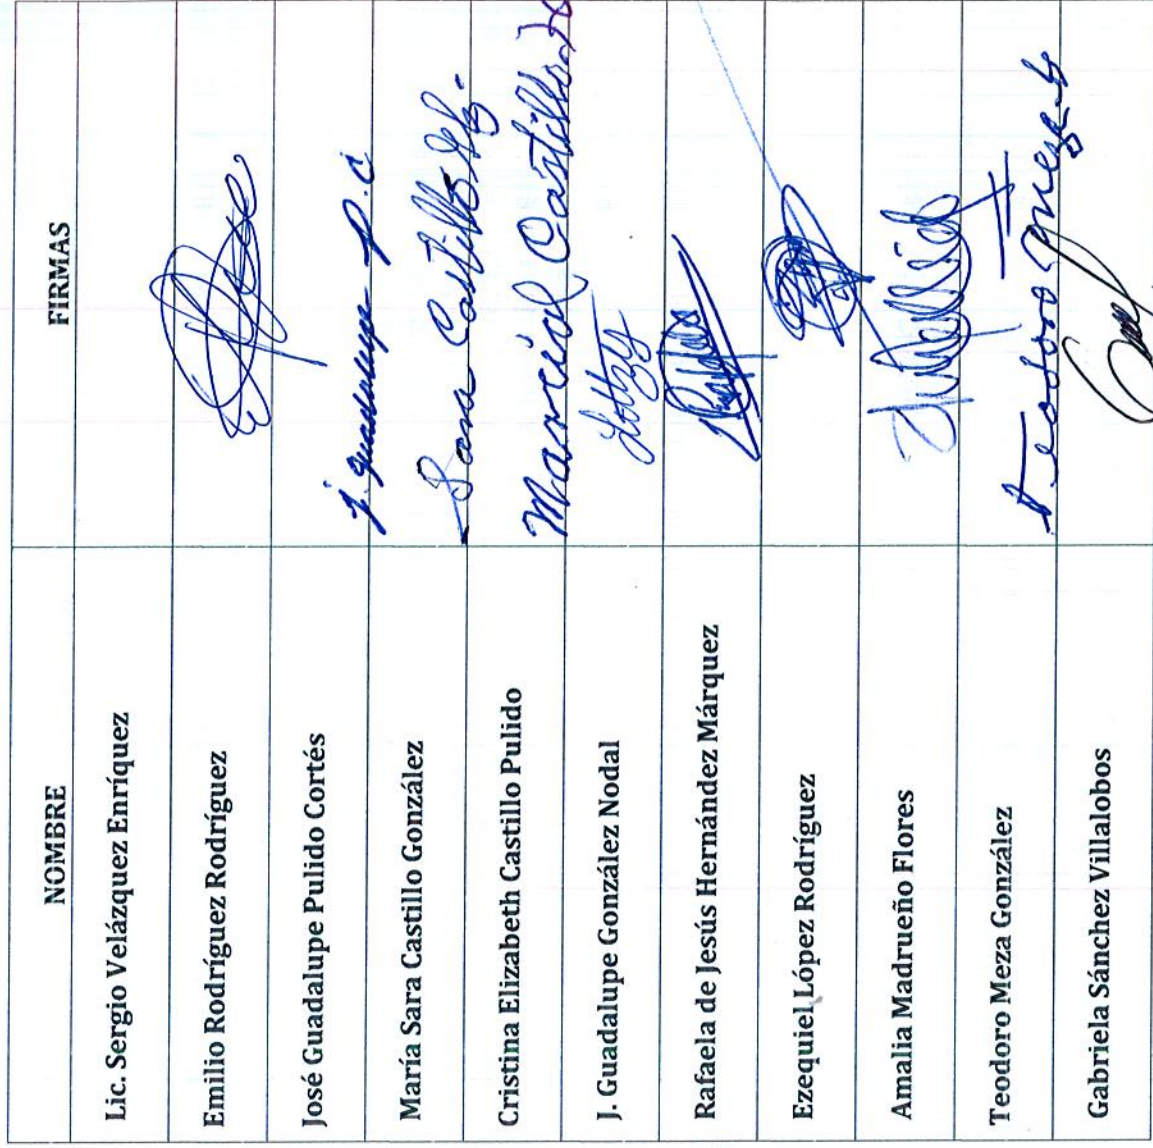 NOMBRE FIRMAS
Lic. Sergio Velázquez Enríquez
Emilio Rodríguez Rodríguez
José Guadalupe Pulido Cortés J. Guadalupe P. C
María Sara Castillo González Sara Castillo
Cristina Elizabeth Castillo Pulido Marcial Castillo
J. Guadalupe González Nodal
Rafaela de Jesús Hernández Márquez Rafaela
Ezequiel López Rodríguez
Amalia Madrueño Flores
Teodoro Meza González teodoro meza
Gabriela Sánchez Villalobos